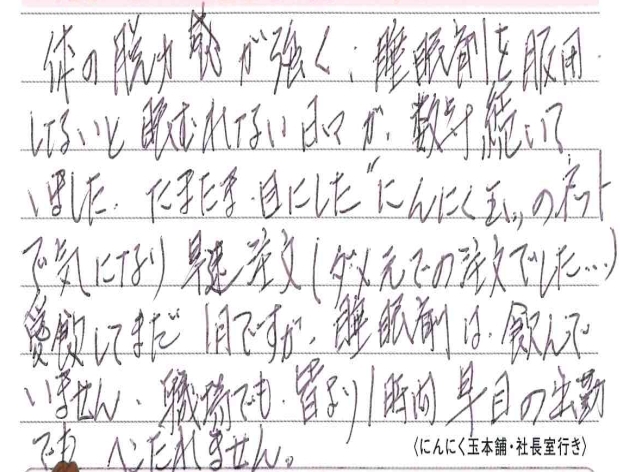 体の脱力感が強く、睡眠剤を服用
しないと眠むれない日々が、数年続いて
いました。たまたま、目にした"にんにく玉"のネット
で気になり早速注文(ダメ元での注文でした…)
愛飲してまだ1月ですが、睡眠剤は、飲んで
いません、職場でも、皆より1時間早目の出勤
でも ヘこたれません。
〈にんにく玉本舗・社長室行き〉